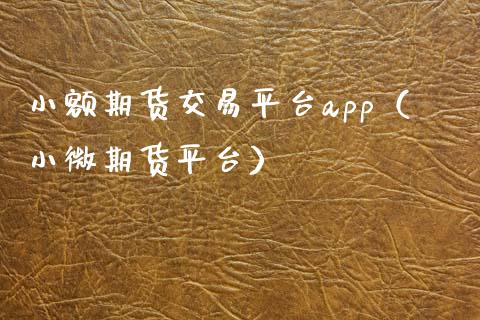 小额期货交易平台app（
小微期货平台）